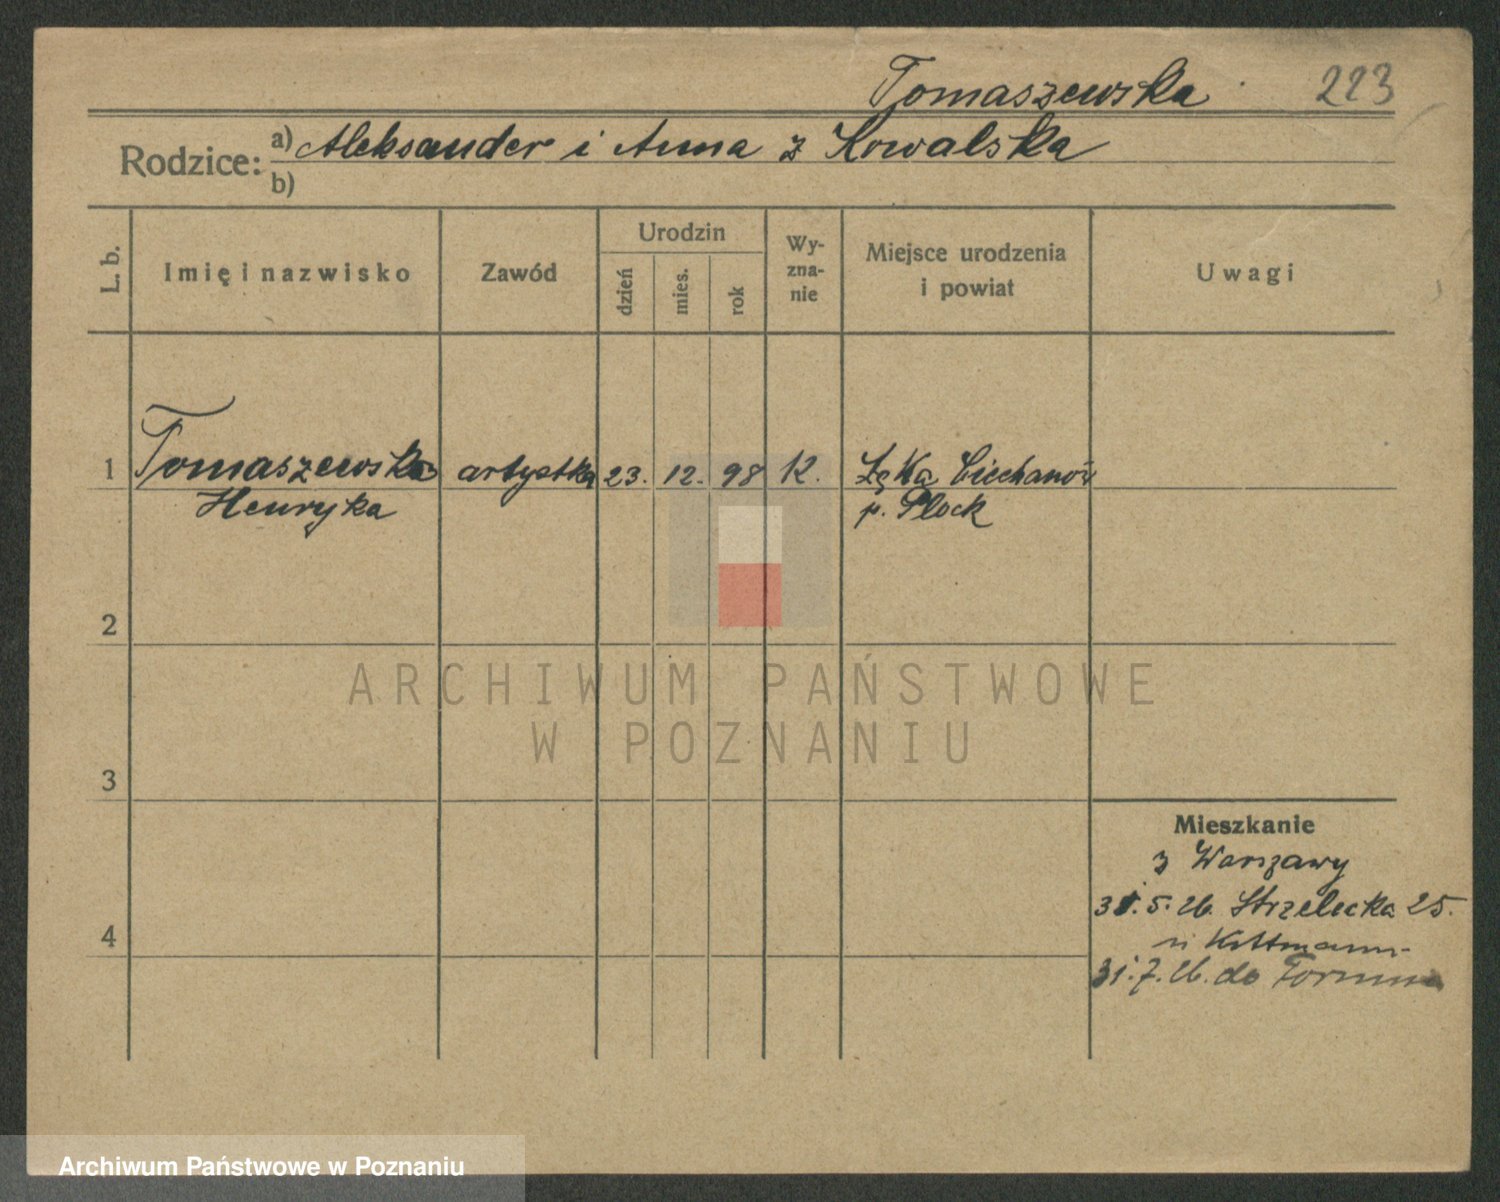 Tomaszewska 223
Rodzice: a) Aleksander i Anna z Kowalska
b)
L. b.
Imię i nazwisko
Zawód
Urodzin
dzień
mies.
rok
Wy-
zna-
nie
Miejsce urodzenia
i powiat
Uwagi
1 Tomaszewska artystka 23. 12. 98 K. Łąka Ciechanów
Henryka p. Płock
2
3
4
ARCHIWUM PAŃSTWOWE
W POZNANIU
Mieszkanie
z Warszawy
31.5.26. Strzelecka 25.
31.7.26. do Torunia
Archiwum Państwowe w Poznaniu